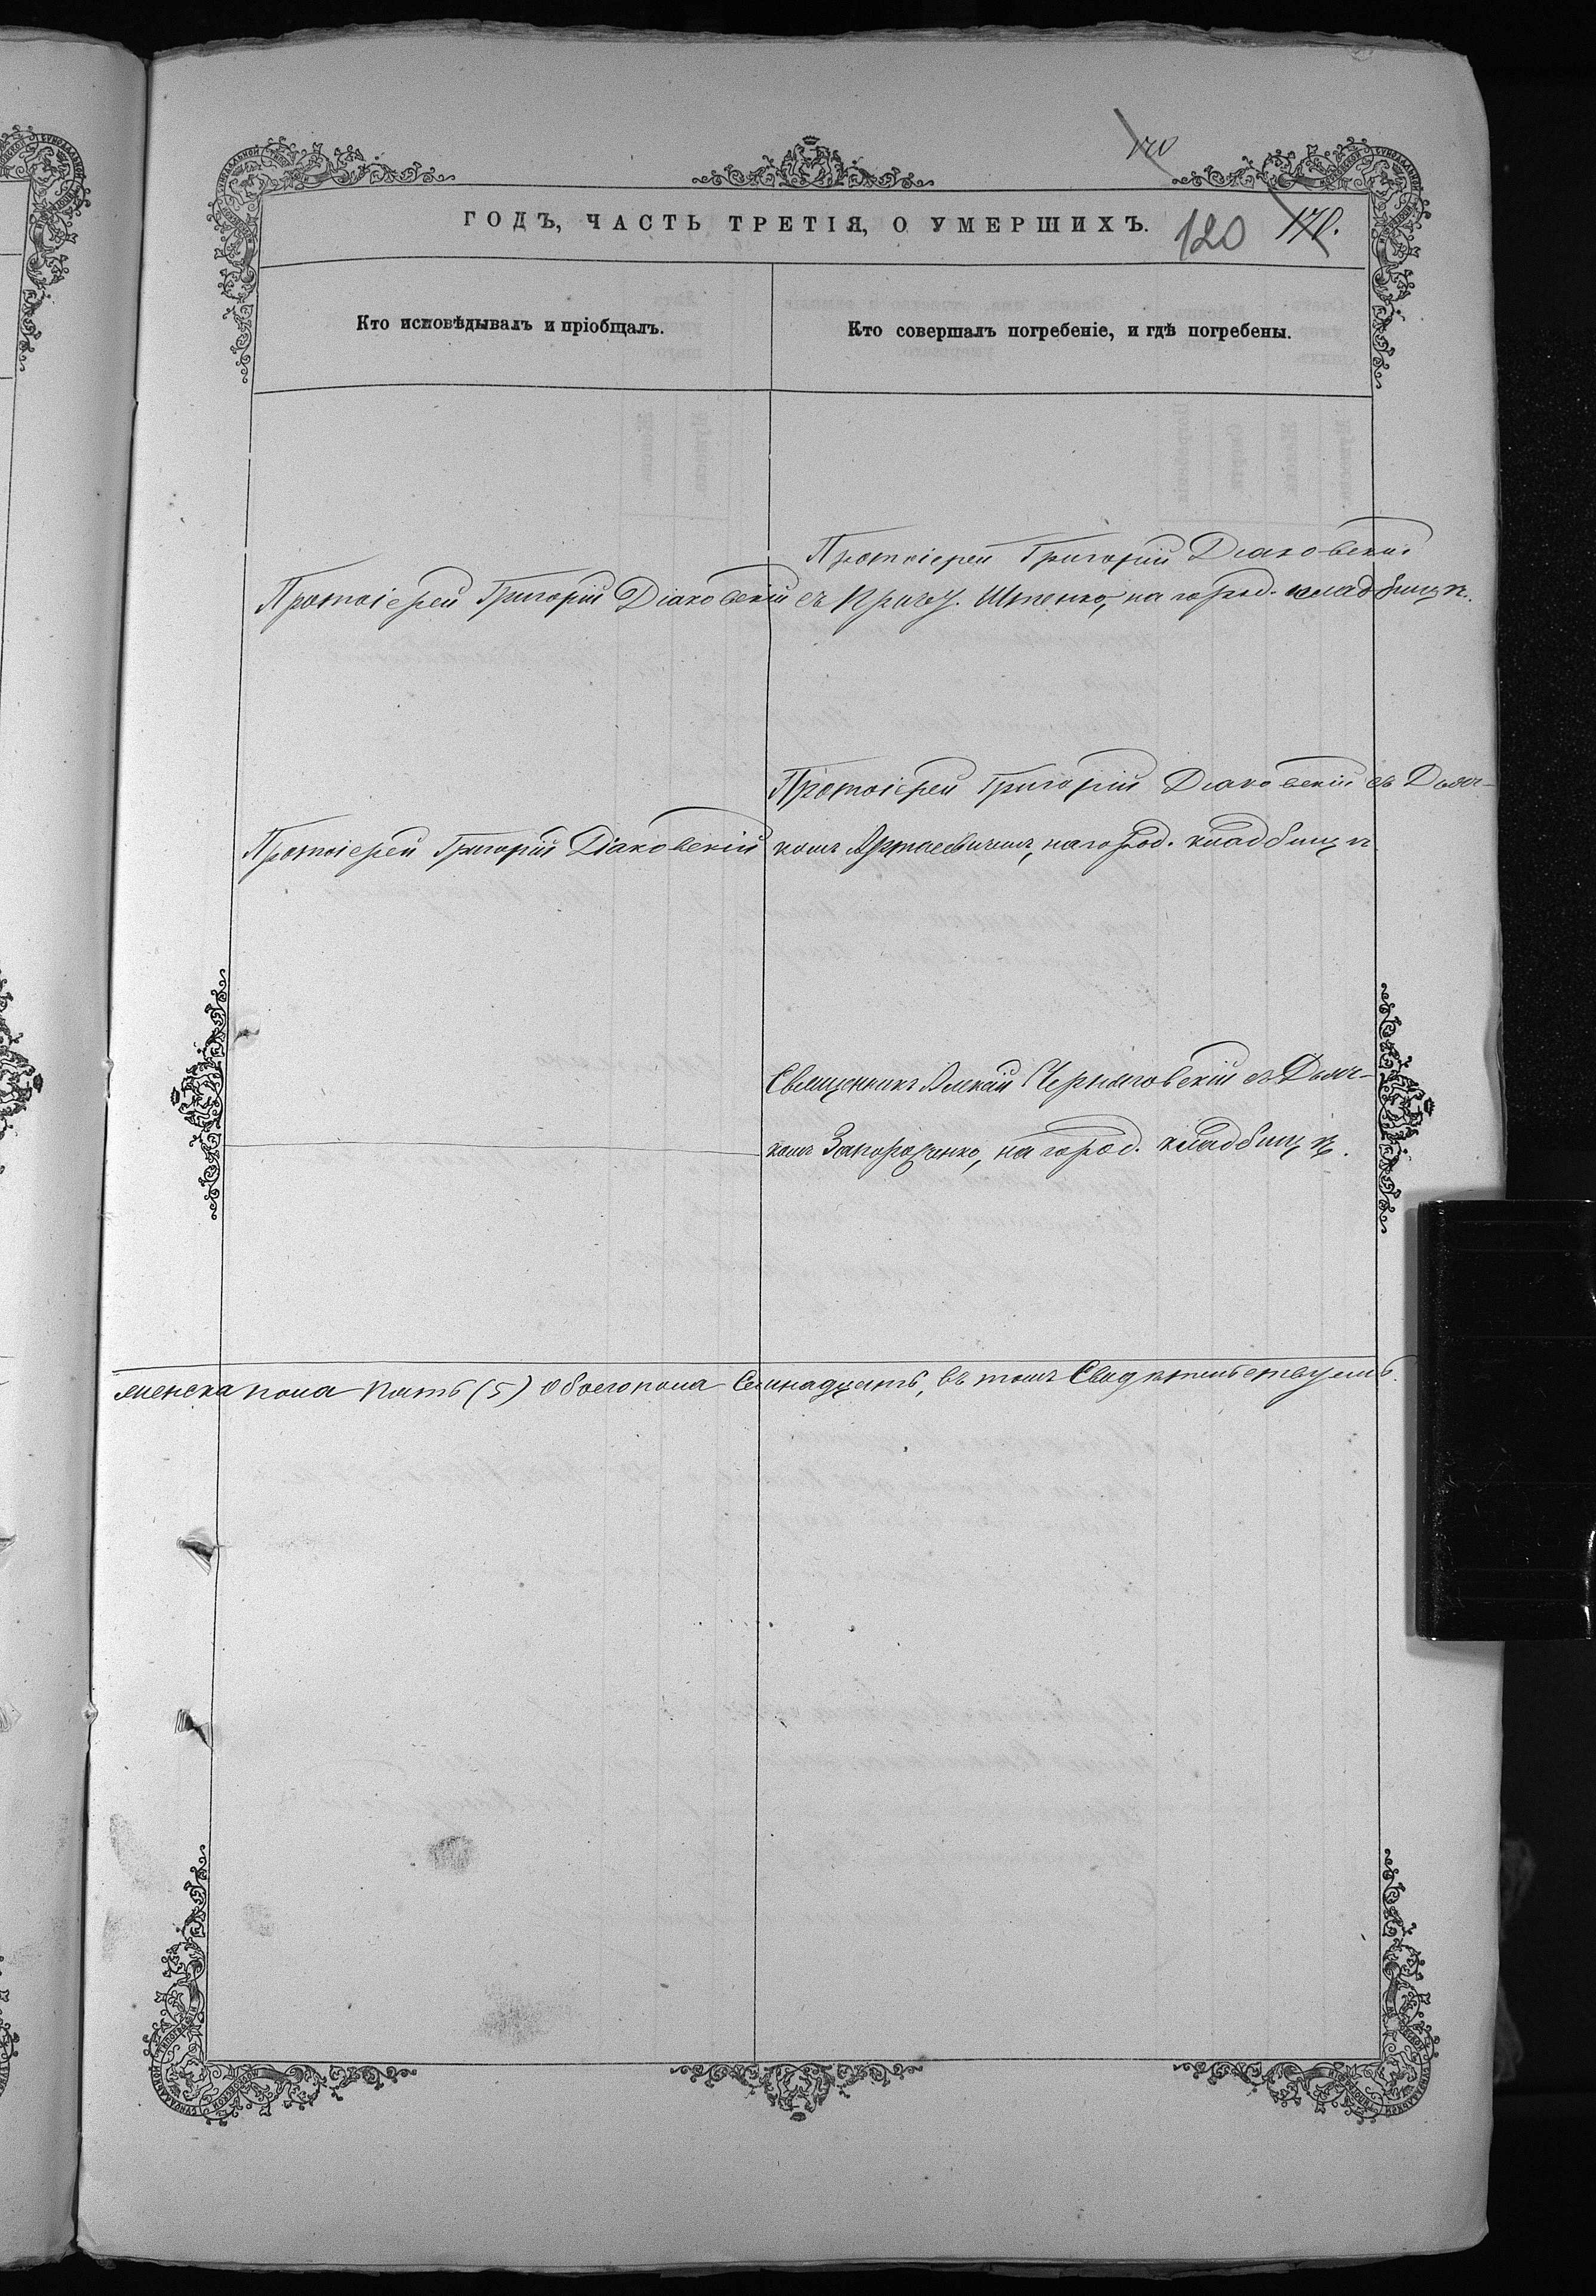 170
ГОДЪ, ЧАСТЬ ТРЕТІЯ, О УМЕРШИХЪ.
120
170.
Кто исповѣдывалъ и пріобщалъ.
Кто совершалъ погребеніе, и гдѣ погребены.
Протоіерей Григорій Діаковскій
Протоіерей Григорій Діаковскій
съ Причет. на город. кладбищѣ.
Протоіерей Григорій Діаковскій
Протоіерей Григорій Діаковскій съ Дьяч-
комъ на город. кладбищѣ
Священникъ Черняговскій съ Дьяч-
комъ Запорожченко, на город. кладбищѣ.
женска пола пять (5) обоего пола Семнадцать, въ томъ Свидѣтельствуемъ.